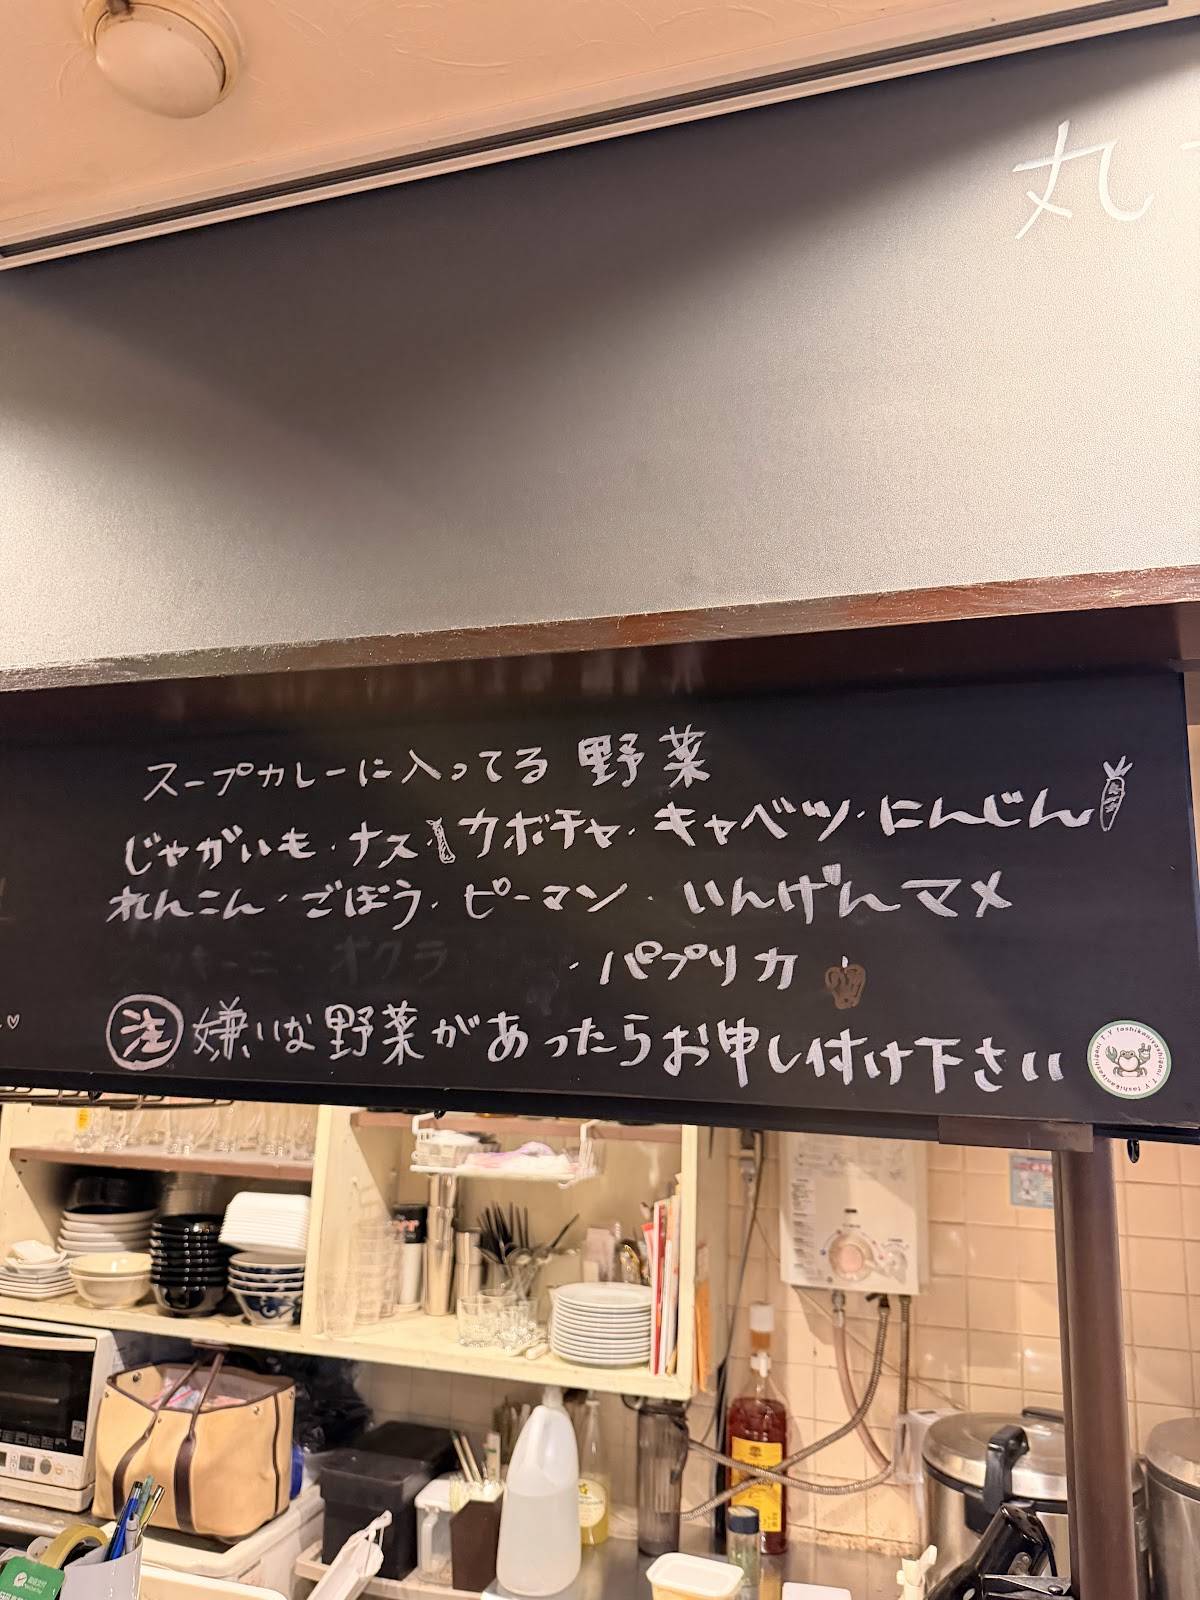 丸
スープカレーに入ってる 野菜
じゃがいも・ナス・カボチャ・キャベツ・にんじん
れんこん・ごぼう・ピーマン・いんげんマメ
オクラ ・パプリカ
注 嫌いな野菜があったらお申し付け下さい